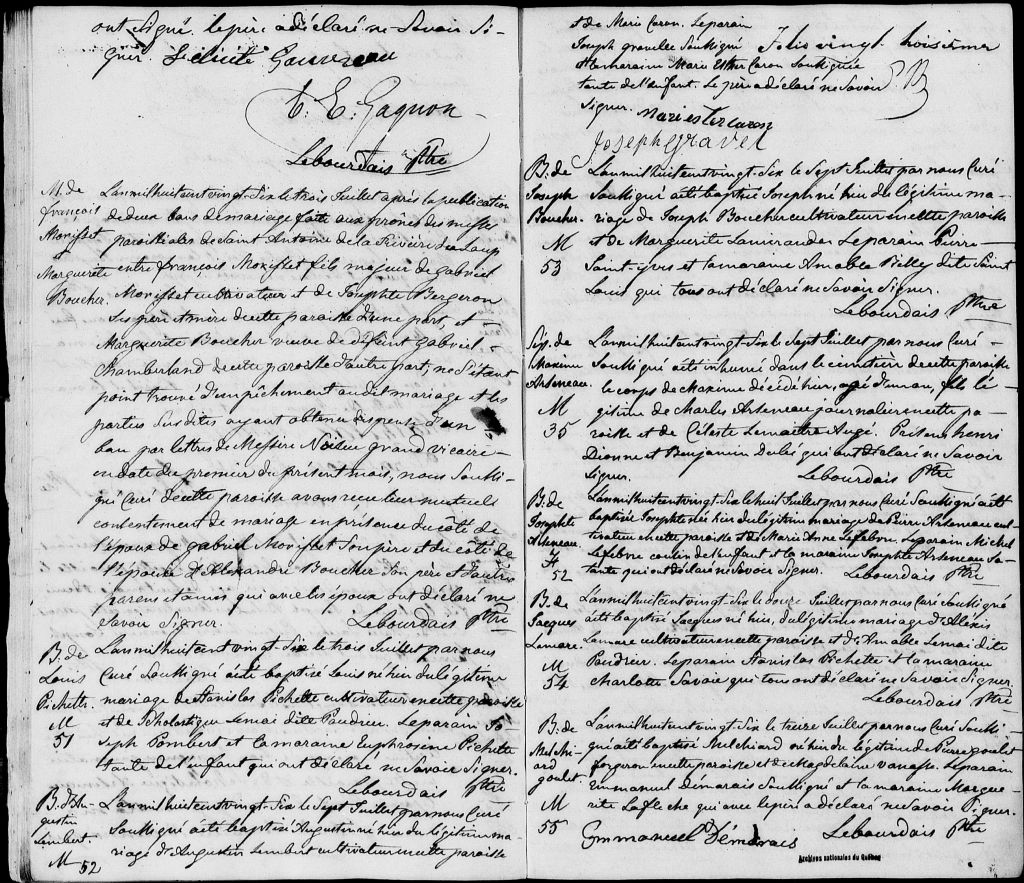 ont Signé. le père a déclaré ne Savoir Si-
gner. Félicité Gauvreau
C. E. Gagnon
Lebourdais Ptre
M. de
françois
Morisset
Marguerite
Boucher.
L'an mil huit cent vingt-Six le trois Juillet après la publication
de deux bans de mariage faite aux prônes des messes
paroissiales de Saint Antoine de la Rivière du Loup
entre françois Morisset fils majeur de gabriel
Morisset cultivateur et de Josephte Bergeron
Ses père et mère de cette paroisse d'une part, et
Marguerite Boucher veuve de défunt Gabriel
Chamberland de cette paroisse d'autre part, ne S'étant
point trouvé d'empêchement au dit mariage et les
parties Susdites ayant obtenu dispense d'un
ban par lettres de Messire Noiseu grand vicaire
en date du premier du présent mois, nous Soussi-
gné Curé de cette paroisse avons reçu leur mutuel
consentement de mariage en présence du côté de
l'époux de gabriel Morisset Son père et du côté de
l'épouse d'Alexandre Boucher Son père et d'autres
parens et amis qui avec les époux ont déclaré ne
Savoir Signer. Lebourdais Ptre
B. de
Louis
Pichette
M
51
L'an mil huit cent vingt-Six le trois Juillet par nous
Curé Soussigné a été baptisé Louis né hier du légitime
mariage de Stanislas Pichette cultivateur en cette paroisse
et de Scholastique Lemai dite Poudrier. Le parain Jo-
seph Lombert et la maraine Euphrosine Pichette
tante de l'enfant qui ont déclaré ne Savoir Signer.
Lebourdais Ptre
B. d'Au-
gustin
Lembert.
M 52
L'an mil huit cent vingt-Six le Sept Juillet par nous Curé
Soussigné a été baptisé Augustin né hier du légitime ma-
riage d'Augustin Lembert cultivateur en cette paroisse
et de Marie Caron. Le parain
Joseph gravelle Soussigné Folio vingt-troisieme
et la maraine Marie Esther Caron Soussignée
tante de l'enfant. Le père a déclaré ne Savoir
Signer. Marie ester caron
Joseph gravel
B. de
Joseph
Boucher
M
53
L'an mil huit cent vingt-Six le Sept Juillet par nous Curé
Soussigné a été baptisé Joseph né hier du légitime ma-
riage de Joseph Boucher cultivateur en cette paroisse
et de Marguerite Lamirande. Le parain Pierre
Saint-yves et la maraine Amable Rielley dite Saint
Louis qui tous ont déclaré ne Savoir Signer.
Lebourdais Ptre
Sép. de
Maxime
Arseneau.
M
35
L'an mil huit cent vingt-Six le Sept Juillet par nous Curé
Soussigné a été inhumé dans le cimetière de cette paroisse
le corps de Maxime décédé hier, agé d'un an, fils lé-
gitime de Charles Arseneau journalier en cette pa-
roisse et de Céleste Lemaitre Augé. Présens henri
Dionne et Benjamin Dubé qui ont déclaré ne Savoir
Signer. Lebourdais Ptre
B. de
Josephte
Arseneau.
F
52
L'an mil huit cent vingt-Six le huit Juillet par nous Curé Soussigné a été
baptisée Josephte née hier du légitime mariage de Pierre Arseneau cul-
tivateur en cette paroisse et de Marie Anne Lefebvre. Le parain Michel
Lefebvre cousin de l'enfant et la maraine Josephte Arseneau Sa
tante qui ont déclaré ne Savoir Signer. Lebourdais Ptre
B. de
Jacques
Lemare.
M
54
L'an mil huit cent vingt-Six le douze Juillet par nous Curé Soussigné
a été baptisé Jacques né hier, du légitime mariage d'Alexis
Lemare cultivateur en cette paroisse et d'Amable Lemai dite
Poudrier. Le parain Stanislas Pichette et la maraine
Charlotte Savoie qui tous ont déclaré ne Savoir Signer.
Lebourdais Ptre
B. de
Melchi-
ard
goulet.
M
55
L'an mil huit cent vingt-Six le treize Juillet par nous Curé Soussi-
gné a été baptisé Melchiard né hier du légitime de Pierre goulet
forgeron en cette paroisse et de Magdelaine vanasse. Le parain
Emmanuel demarais Soussigné et la maraine Margue-
rite Lafleche qui avec le père a déclaré ne Savoir Signer.
Emmanuel Démarais Lebourdais Ptre
Archives nationales du Québec